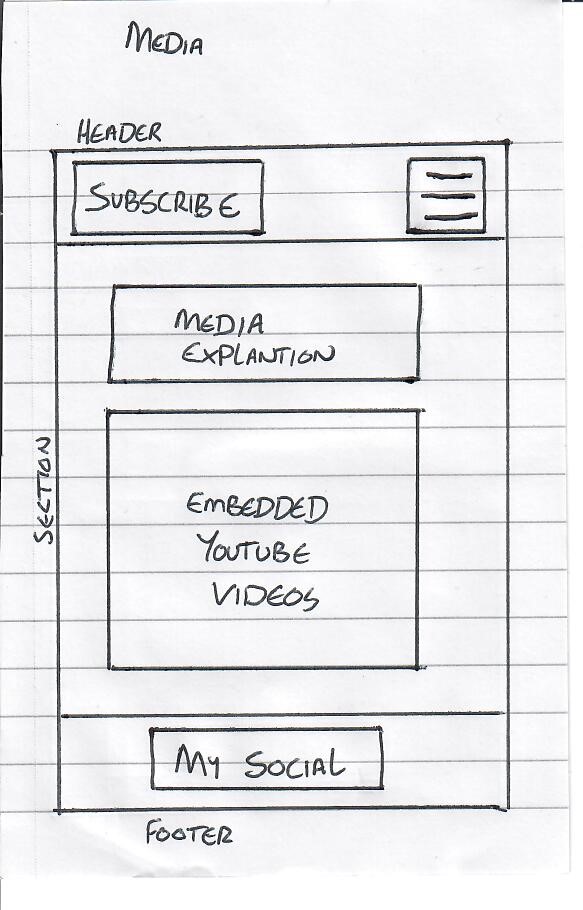 MEDIA
HEADER
SUBSCRIBE
MEDIA
EXPLANTION
SECTION
EMBEDDED
YOUTUBE
VIDEOS
MY SOCIAL
FOOTER